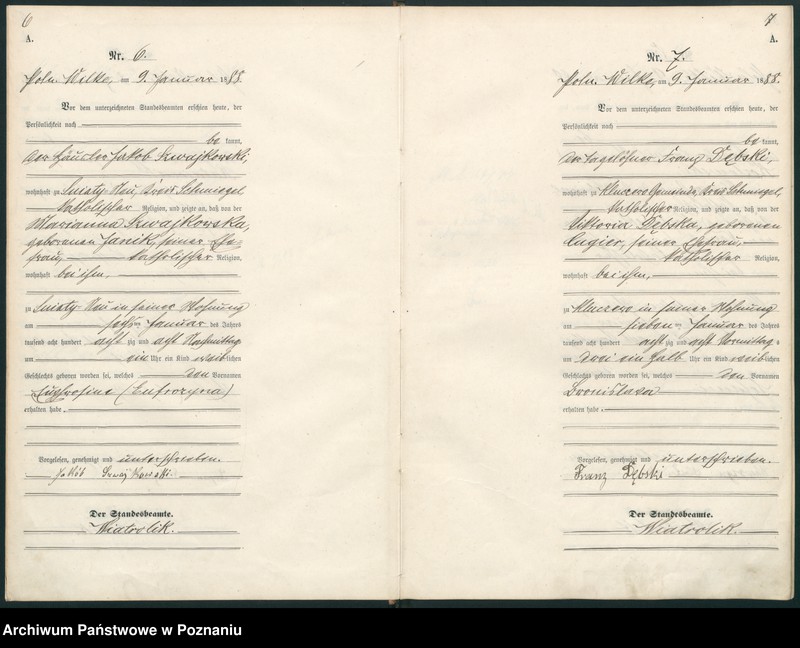 6
A.
Nr. 6.
Poln. Wilke, am 9. Januar 1888.
Vor dem unterzeichneten Standesbeamten erschien heute, der
Persönlichkeit nach
be kannt,
der Häusler Jakob Szwajkowski,
wohnhaft zu Swiaty Neu, Kreis Schmiegel
katholischer Religion, und zeigte an, daß von der
Marianna Szwajkowska,
geborenen Janek, seiner Ehe-
frau, katholischer Religion,
wohnhaft bei ihm,
zu Swiaty Neu in seiner Wohnung
am sechsten Januar des Jahres
tausend acht hundert achtzig und acht Nachmittag
um ein Uhr ein Kind weiblichen
Geschlechts geboren worden sei, welches den Vornamen
Euphrosine (Eufrozyna)
erhalten habe.
Vorgelesen, genehmigt und unterschrieben.
Jakób Szwajkowski
Der Standesbeamte.
Wiatrolik.
7
A.
Nr. 7.
Poln. Wilke, am 9. Januar 1888.
Vor dem unterzeichneten Standesbeamten erschien heute, der
Persönlichkeit nach
be kannt,
der Tagelöhner Franz Dębski,
wohnhaft zu Kluczewo Gemeinde, Kreis Schmiegel,
katholischer Religion, und zeigte an, daß von der
Viktoria Dębska, geborenen
Cugier, seiner Ehefrau,
katholischer Religion,
wohnhaft bei ihm,
zu Kluczewo in seiner Wohnung
am sieben ten Januar des Jahres
tausend acht hundert achtzig und acht Vormittag
um zwei ein halb Uhr ein Kind weiblichen
Geschlechts geboren worden sei, welches den Vornamen
Bronislawa
erhalten habe.
Vorgelesen, genehmigt und unterschrieben.
Franz Dębski
Der Standesbeamte.
Wiatrolik.
Archiwum Państwowe w Poznaniu